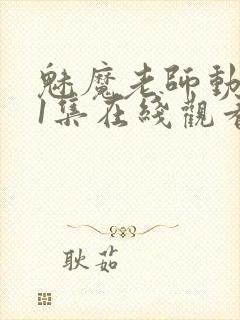 魅魔老師動
1集在綫觀看
耿茹